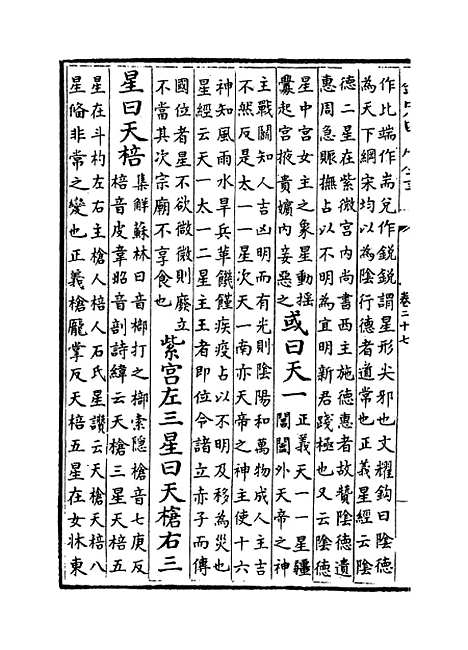 卷二十七
作比端作耑兌作銳銳謂星形尖邪也文耀鈎曰陰德
為天下綱宋均以為陰行德者道常也正義星經云陰
德二星在紫微宮内尚書西主施德惠者故贊陰德遺
惠周急賑撫占以不明為宜明新君踐極也又云陰德
星中宮女主之象星動搖
釁起宮掖貴嬪内妾惡之
或曰天一
正義天一一星疆
閶闔外天帝之神
主戰鬬知人吉凶明而有光則陰陽和萬物成人主吉
不然反是太一一星次天一南亦天帝之神主使十六
神知風雨水旱兵革饑饉疾疫占以不明及移為災也
星經云天一太一二星主王者即位令諸立赤子而傳
國位者星不欲微微則廢立
不當其次宗廟不享食也
紫宮左三星曰天槍右三
星曰天棓
集觧蘇林曰音榔打之榔索隱槍音七庚反
棓音皮韋昭音剖詩緯云天槍三星天棓五
星在斗杓左右主槍人棓人石氏星讚云天槍天棓八
星偹非常之變也正義槍龎掌反天棓五星在女牀東